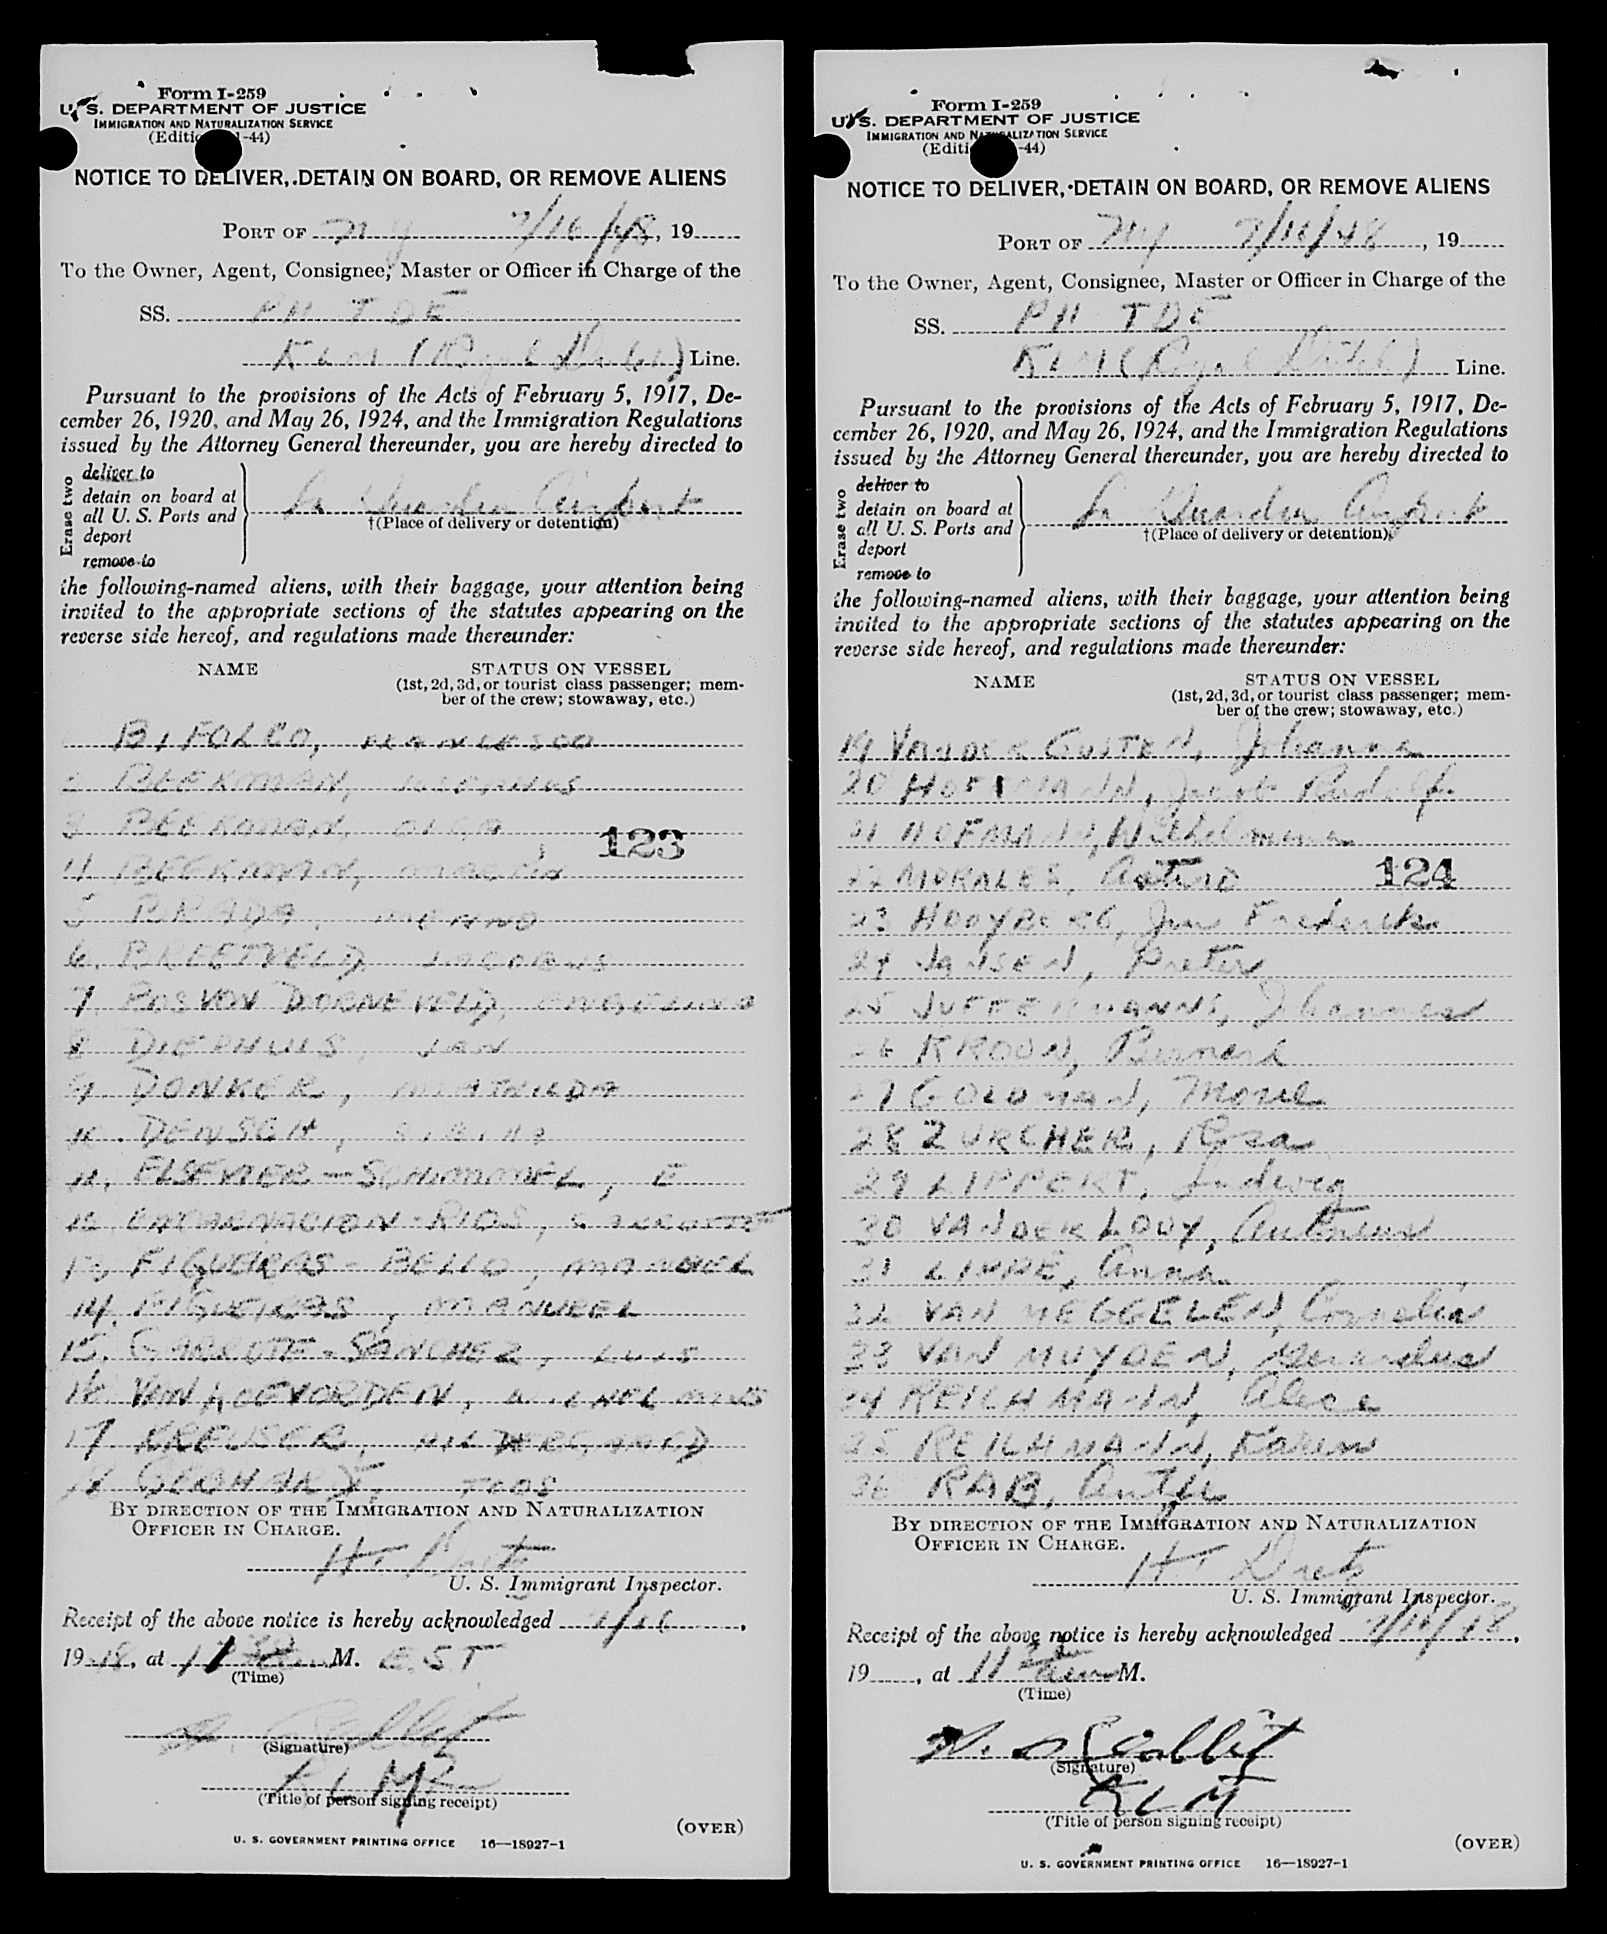 Form I-259
U. S. DEPARTMENT OF JUSTICE
IMMIGRATION AND NATURALIZATION SERVICE
(Editi -44)
NOTICE TO DELIVER, DETAIN ON BOARD, OR REMOVE ALIENS
PORT OF NY 7/16/48, 19
To the Owner, Agent, Consignee, Master or Officer in Charge of the
SS. PH TDE
KLM (Royal Dutch) Line.
Pursuant to the provisions of the Acts of February 5, 1917, De-
cember 26, 1920, and May 26, 1924, and the Immigration Regulations
issued by the Attorney General thereunder, you are hereby directed to
Erase two
deliver to
detain on board at
all U. S. Ports and
deport
remove to
La Guardia Airport
†(Place of delivery or detention)
the following-named aliens, with their baggage, your attention being
invited to the appropriate sections of the statutes appearing on the
reverse side hereof, and regulations made thereunder:
NAME STATUS ON VESSEL
(1st, 2d, 3d, or tourist class passenger; mem-
ber of the crew; stowaway, etc.)
BIFOLCO, FRANCESCO
2 BEEKMAN,
3 BEEKMAN, OLGA
123
4 BEEKMAN,
5 BRADA, MENNO
6. BREETVELD JACOBUS
7. DORNEVELD,
8 DIEPHUIS, JAN
9. DONKER, MATHILDA
10.
11. ELSEVIER - SCHIMMEL, E
12. ENCARNACION - RIOS,
13. FIGUEIRAS - BELLO, MANUEL
14. FIGUEIRAS, MANUEL
15. GARROTE - SANCHEZ, LUIS
16. VAN COEVORDEN, WILHELMUS
17 KREUSER, HILDEGARD
18 TOOS
BY DIRECTION OF THE IMMIGRATION AND NATURALIZATION
OFFICER IN CHARGE.
H.
U. S. Immigrant Inspector.
Receipt of the above notice is hereby acknowledged 7/16,
1948, at 11 M. EST
(Time)
(Signature)
KLM
(Title of person signing receipt)
(OVER)
U. S. GOVERNMENT PRINTING OFFICE 16—18927-1
Form I-259
U. S. DEPARTMENT OF JUSTICE
IMMIGRATION AND NATURALIZATION SERVICE
(Editi -44)
NOTICE TO DELIVER, DETAIN ON BOARD, OR REMOVE ALIENS
PORT OF NY 7/16/48, 19
To the Owner, Agent, Consignee, Master or Officer in Charge of the
SS. PH TDE
KLM (Royal Dutch) Line.
Pursuant to the provisions of the Acts of February 5, 1917, De-
cember 26, 1920, and May 26, 1924, and the Immigration Regulations
issued by the Attorney General thereunder, you are hereby directed to
Erase two
deliver to
detain on board at
all U. S. Ports and
deport
remove to
La Guardia Airport
†(Place of delivery or detention)
the following-named aliens, with their baggage, your attention being
invited to the appropriate sections of the statutes appearing on the
reverse side hereof, and regulations made thereunder:
NAME STATUS ON VESSEL
(1st, 2d, 3d, or tourist class passenger; mem-
ber of the crew; stowaway, etc.)
19 VANDER GUSTEN, Johanna
20 HOFMANN, Jacob Rudolf
21 HOFMANN, Wilhelmina
22 MORALES, Arturo
124
23 HOOYBERG, Jan Frederik
24 JANSEN, Pieter
25 JUFFERMANNS, Johannes
26 KROON, Bernard
27 GOLDMAN,
28 ZURCHER, Rosa
29 LIPPERT, Ludwig
30 VANDER LOOY, Antonius
31 Anna
32 VAN MEGGELEN, Cornelia
33 VAN MUYDEN, Gerardus
34 REICHMANN, Alice
35 REICHMANN, Karin
36 RAB, Antje
BY DIRECTION OF THE IMMIGRATION AND NATURALIZATION
OFFICER IN CHARGE.
H.
U. S. Immigrant Inspector.
Receipt of the above notice is hereby acknowledged 7/16/48,
19, at 11 M.
(Time)
(Signature)
KLM
(Title of person signing receipt)
(OVER)
U. S. GOVERNMENT PRINTING OFFICE 16—18927-1